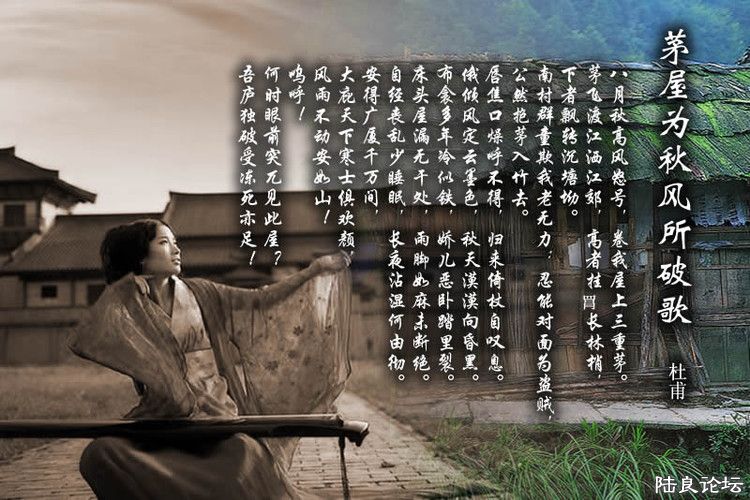 茅屋为秋风所破歌
杜甫
八月秋高风怒号，卷我屋上三重茅。
茅飞渡江洒江郊，高者挂罥长林梢，
下者飘转沉塘坳。
南村群童欺我老无力，忍能对面为盗贼，
公然抱茅入竹去。
唇焦口燥呼不得，归来倚杖自叹息。
俄倾风定云墨色，秋天漠漠向昏黑。
布衾多年冷似铁，娇儿恶卧踏里裂。
床头屋漏无干处，雨脚如麻未断绝。
自经丧乱少睡眠，长夜沾湿何由彻。
安得广厦千万间，
大庇天下寒士俱欢颜，
风雨不动安如山！
呜呼！
何时眼前突兀见此屋？
吾庐独破受冻死亦足！
陆良论坛